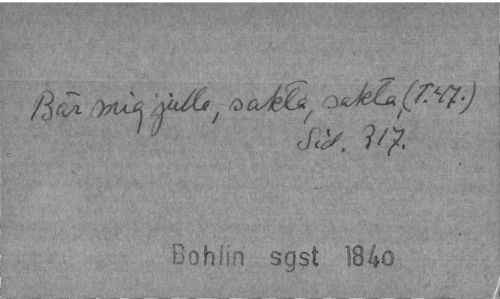 Bär mig julle, sakta, sakta, (T.47.)
Sid. 317.
Bohlin sgst 1840